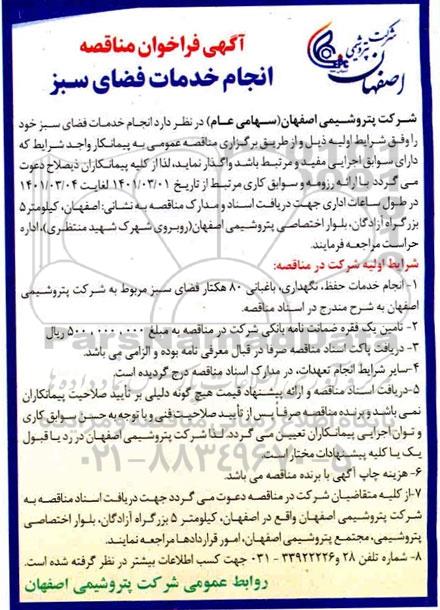 شرکت پتروشیمی
اصفهان
آگهی فراخوان مناقصه
انجام خدمات فضای سبز
شرکت پتروشیمی اصفهان (سهامی عام) در نظر دارد انجام خدمات فضای سبز خود
را وفق شرایط اولیه ذیل و از طریق برگزاری مناقصه عمومی به پیمانکار واجد شرایط که
دارای سوابق اجرایی مفید و مرتبط باشد واگذار نماید، لذا از کلیه پیمانکاران ذیصلاح دعوت
می گردد با ارائه رزومه و سوابق کاری مرتبط از تاریخ ۱۴۰۱/۰۳/۰۱ لغایت ۱۴۰۱/۰۳/۰۴
در طول ساعات اداری جهت دریافت اسناد و مدارک مناقصه به نشانی: اصفهان، کیلومتر ۵
بزرگراه آزادگان، بلوار اختصاصی پتروشیمی اصفهان (روبروی شهرک شهید منتظری)، اداره
حراست مراجعه فرمایند.
شرایط اولیه شرکت در مناقصه:
۱- انجام خدمات حفظ، نگهداری، باغبانی ۸۰ هکتار فضای سبز مربوط به شرکت پتروشیمی
اصفهان به شرح مندرج در اسناد مناقصه.
۲- تامین یک فقره ضمانت نامه بانکی شرکت در مناقصه به مبلغ ۵۰۰,۰۰۰,۰۰۰ ریال
۳- دریافت پاکت اسناد مناقصه صرفا در قبال معرفی نامه بوده و الزامی می باشد.
۴- سایر شرایط انجام تعهدات، در مدارک اسناد مناقصه درج گردیده است.
۵- دریافت اسناد مناقصه و ارائه پیشنهاد قیمت هیچ گونه دلیلی بر تأیید صلاحیت پیمانکاران
نمی باشد و برنده مناقصه صرفاً پس از تأیید صلاحیت فنی و با توجه به حسن سوابق کاری
و توان اجرایی پیمانکاران تعیین می گردد. لذا شرکت پتروشیمی اصفهان در رد یا قبول
یک یا کلیه پیشنهادات مختار است.
۶- هزینه چاپ آگهی با برنده مناقصه می باشد.
۷- از کلیه متقاضیان شرکت در مناقصه دعوت می گردد جهت دریافت اسناد مناقصه به
شرکت پتروشیمی اصفهان واقع در اصفهان، کیلومتر ۵ بزرگراه آزادگان، بلوار اختصاصی
پتروشیمی، مجتمع پتروشیمی اصفهان، امور قراردادها مراجعه نمایند.
۸- شماره تلفن ۲۸ و ۳۳۹۲۲۲۲۶ - ۰۳۱ جهت کسب اطلاعات بیشتر در نظر گرفته شده است.
روابط عمومی شرکت پتروشیمی اصفهان
ParsNamadData
۰۲۱-۸۸۳۴۹۶۷۰